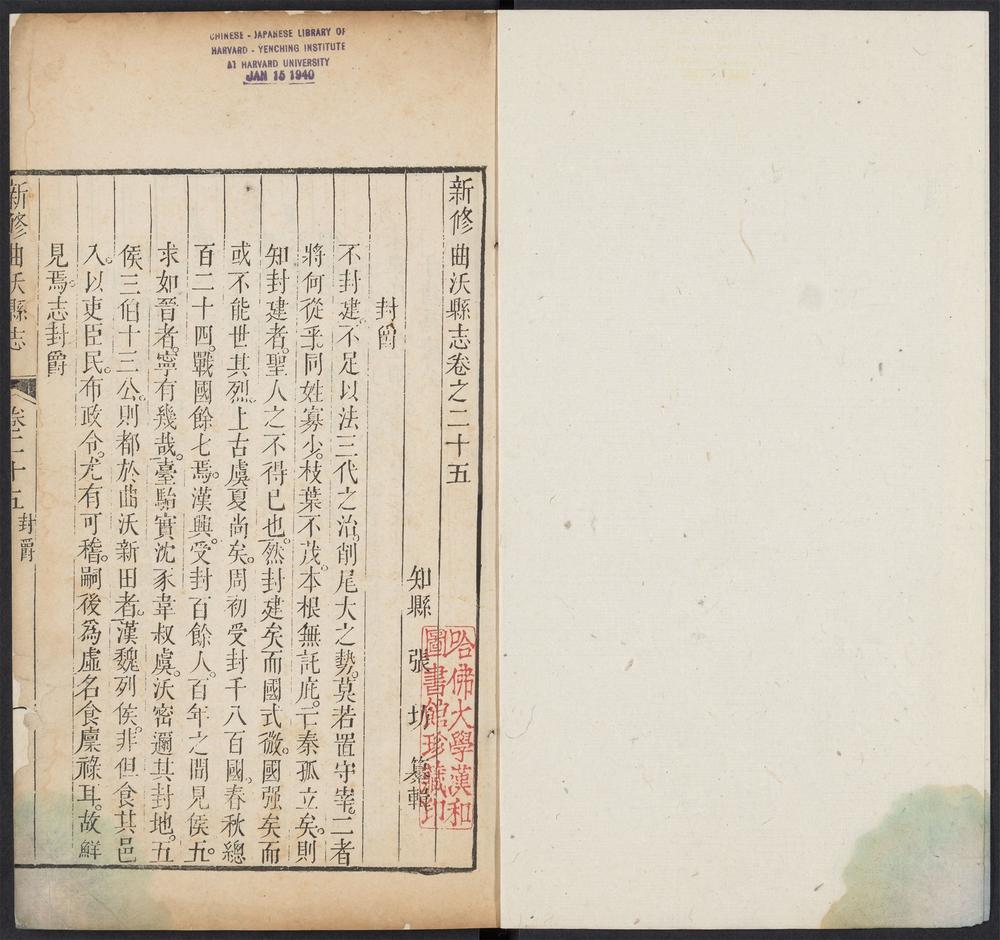 CHINESE - JAPANESE LIBRARY OF
HARVARD - YENCHING INSTITUTE
AT HARVARD UNIVERSITY
JAN 15 1940
新修曲沃縣志卷之二十五
知縣 張 坊 纂輯
哈佛大學漢和
圖書館珍藏印
封爵
不封建。不足以法三代之治。削尾大之勢。莫若置守宰。二者
將何從乎。同姓寡少。枝葉不茂。本根無託庇。亡秦孤立矣。則
知封建者。聖人之不得已也。然封建矣而國式微。國强矣而
或不能世其烈。上古虞夏尚矣。周初受封千八百國。春秋總
百二十四。戰國餘七焉。漢興。受封百餘人。百年之間見侯五。
求如晉者。寧有幾哉。臺駘實沈豕韋叔虞。沃密邇其封地。五
侯三伯十三公。則都於曲沃新田者。漢魏列侯。非但食其邑
入。以吏臣民。布政令。尤有可稽。嗣後爲虛名食廩祿耳。故鮮
見焉。志封爵
新修曲沃縣志
卷二十五
封爵
一